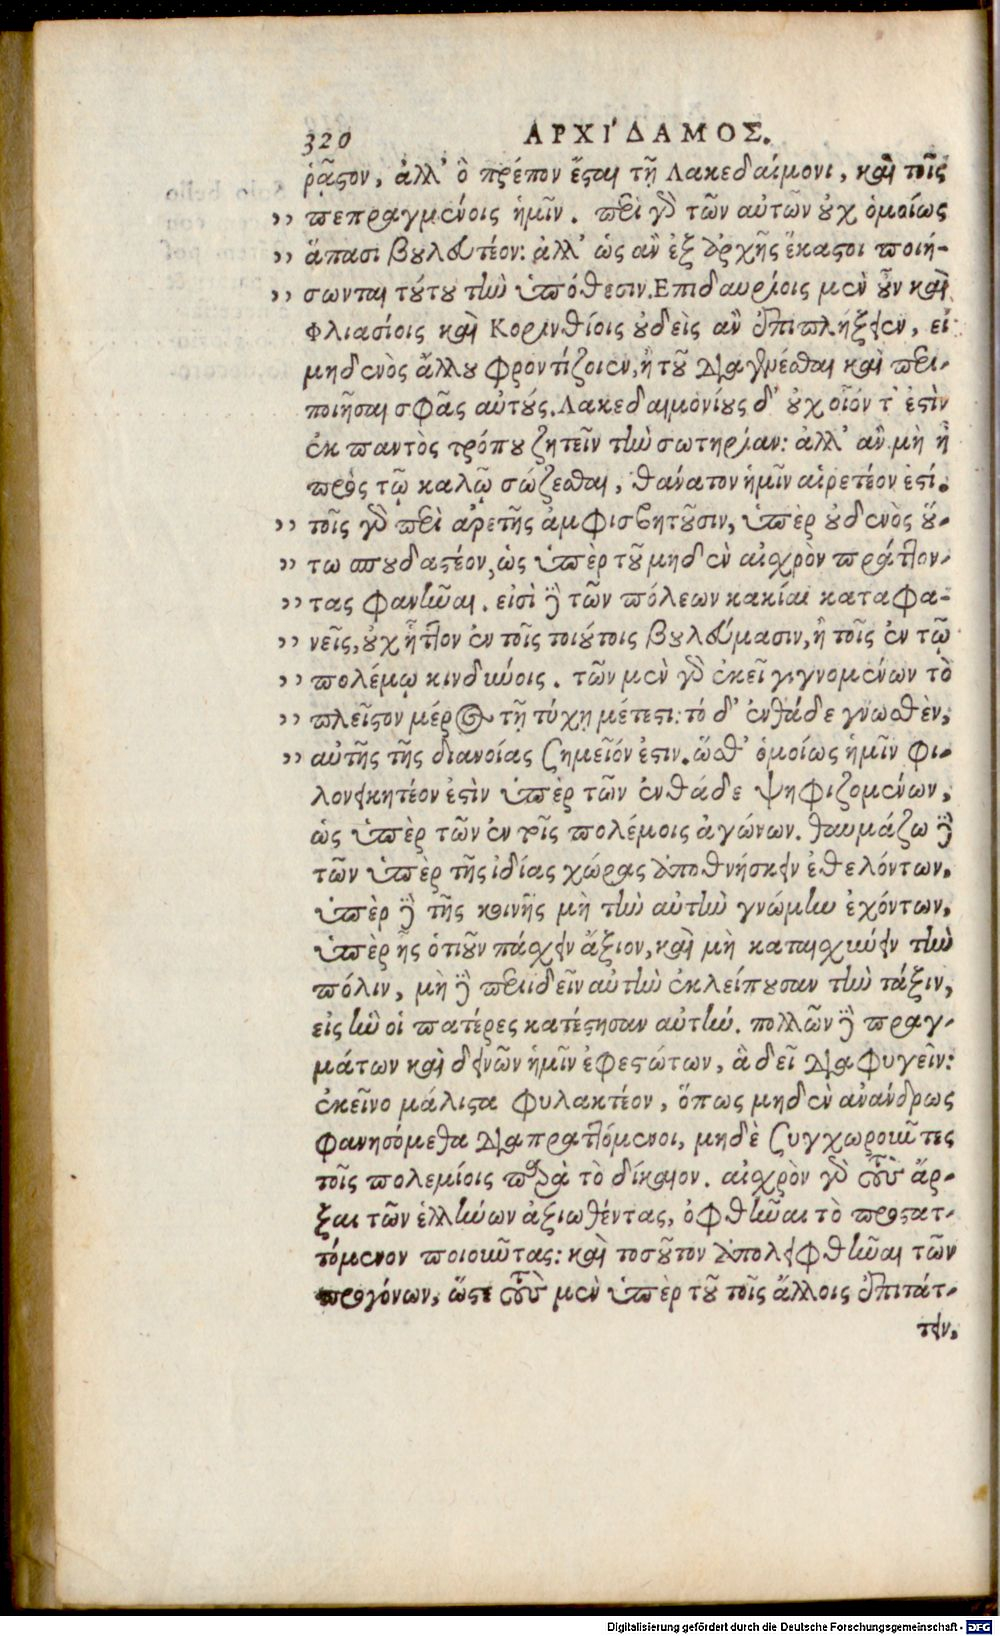 320 ΑΡΧΙ´ΔΑΜΟΣ.
ρᾷστον, ἀλλ' ὃ πρέπον ἔσται τῇ Λακεδαίμονι, καὶ τοῖς
,, πεπραγμένοις ἡμῖν. περὶ γὰρ τῶν αὐτῶν οὐχ ὁμοίως
,, ἅπασι βουλευτέον: ἀλλ' ὡς ἂν ἐξ ἀρχῆς ἕκαστοι ποιή-
,, σωνται τούτου τὴν ὑπόθεσιν. Επιδαυρίοις μὲν οὖν καὶ
Φλιασίοις καὶ Κορινθίοις οὐδεὶς ἂν ἐπιπλήξειεν, εἰ
μηδενὸς ἄλλου φροντίζοιεν, ἢ τοῦ διαγενέσθαι καὶ περι-
ποιῆσαι σφᾶς αὐτούς. Λακεδαιμονίους δ' οὐχ οἷόν τ' ἐστὶν
ἐκ παντὸς τρόπου ζητεῖν τὴν σωτηρίαν: ἀλλ' ἂν μὴ ᾖ
πρὸς τῷ καλῷ σώζεσθαι, θάνατον ἡμῖν αἱρετέον ἐστί.
,, τοῖς γὰρ περὶ ἀρετῆς ἀμφισβητοῦσιν, ὑπὲρ οὐδενὸς οὕ-
,, τω σπουδαστέον, ὡς ὑπὲρ τοῦ μηδὲν αἰσχρὸν πράττον-
,, τας φανῆναι. εἰσὶ δὲ τῶν πόλεων κακίαι καταφα-
,, νεῖς, οὐχ ἧττον ἐν τοῖς τοιούτοις βουλεύμασιν, ἢ τοῖς ἐν τῷ
,, πολέμῳ κινδύνοις. τῶν μὲν γὰρ ἐκεῖ γιγνομένων τὸ
,, πλεῖστον μέρος τῇ τύχῃ μέτεστι: τό δ' ἐνθάδε γνωσθὲν,
,, αὐτῆς τῆς διανοίας σημεῖόν ἐστιν. ὥσθ' ὁμοίως ἡμῖν φι-
λονεικητέον ἐστὶν ὑπὲρ τῶν ἐνθάδε ψηφιζομένων,
ὡς ὑπὲρ τῶν ἐν τοῖς πολέμοις ἀγώνων. θαυμάζω δὲ
τῶν ὑπὲρ τῆς ἰδίας χώρας ἀποθνήσκειν ἐθελόντων,
ὑπὲρ δὲ τῆς κοινῆς μὴ τὴν αὐτὴν γνώμην ἐχόντων,
ὑπὲρ ἧς ὁτιοῦν πάσχειν ἄξιον, καὶ μὴ καταισχύνειν τὴν
πόλιν, μὴ δὲ περιιδεῖν αὐτὴν ἐκλείπουσαν τὴν τάξιν,
εἰς ἣν οἱ πατέρες κατέστησαν αὐτήν. πολλῶν δὲ πραγ-
μάτων καὶ δεινῶν ἡμῖν ἐφεστώτων, ἃ δεῖ διαφυγεῖν:
ἐκεῖνο μάλιστα φυλακτέον, ὅπως μηδὲν ἀνάνδρως
φανησόμεθα διαπραττόμενοι, μηδὲ συγχωροῦντες
τοῖς πολεμίοις παρὰ τὸ δίκαιον. αἰσχρὸν γὰρ τοὺς ἄρ-
ξαι τῶν ἑλλήνων ἀξιωθέντας, ὀφθῆναι τὸ προστατ-
τόμενον ποιοῦντας: καὶ τοσοῦτον ἀπολειφθῆναι τῶν
προγόνων, ὥστε τοὺς μὲν ὑπὲρ τοῦ τοῖς ἄλλοις ἐπιτάτ-
τειν,
Digitalisierung gefördert durch die Deutsche Forschungsgemeinschaft - DFG